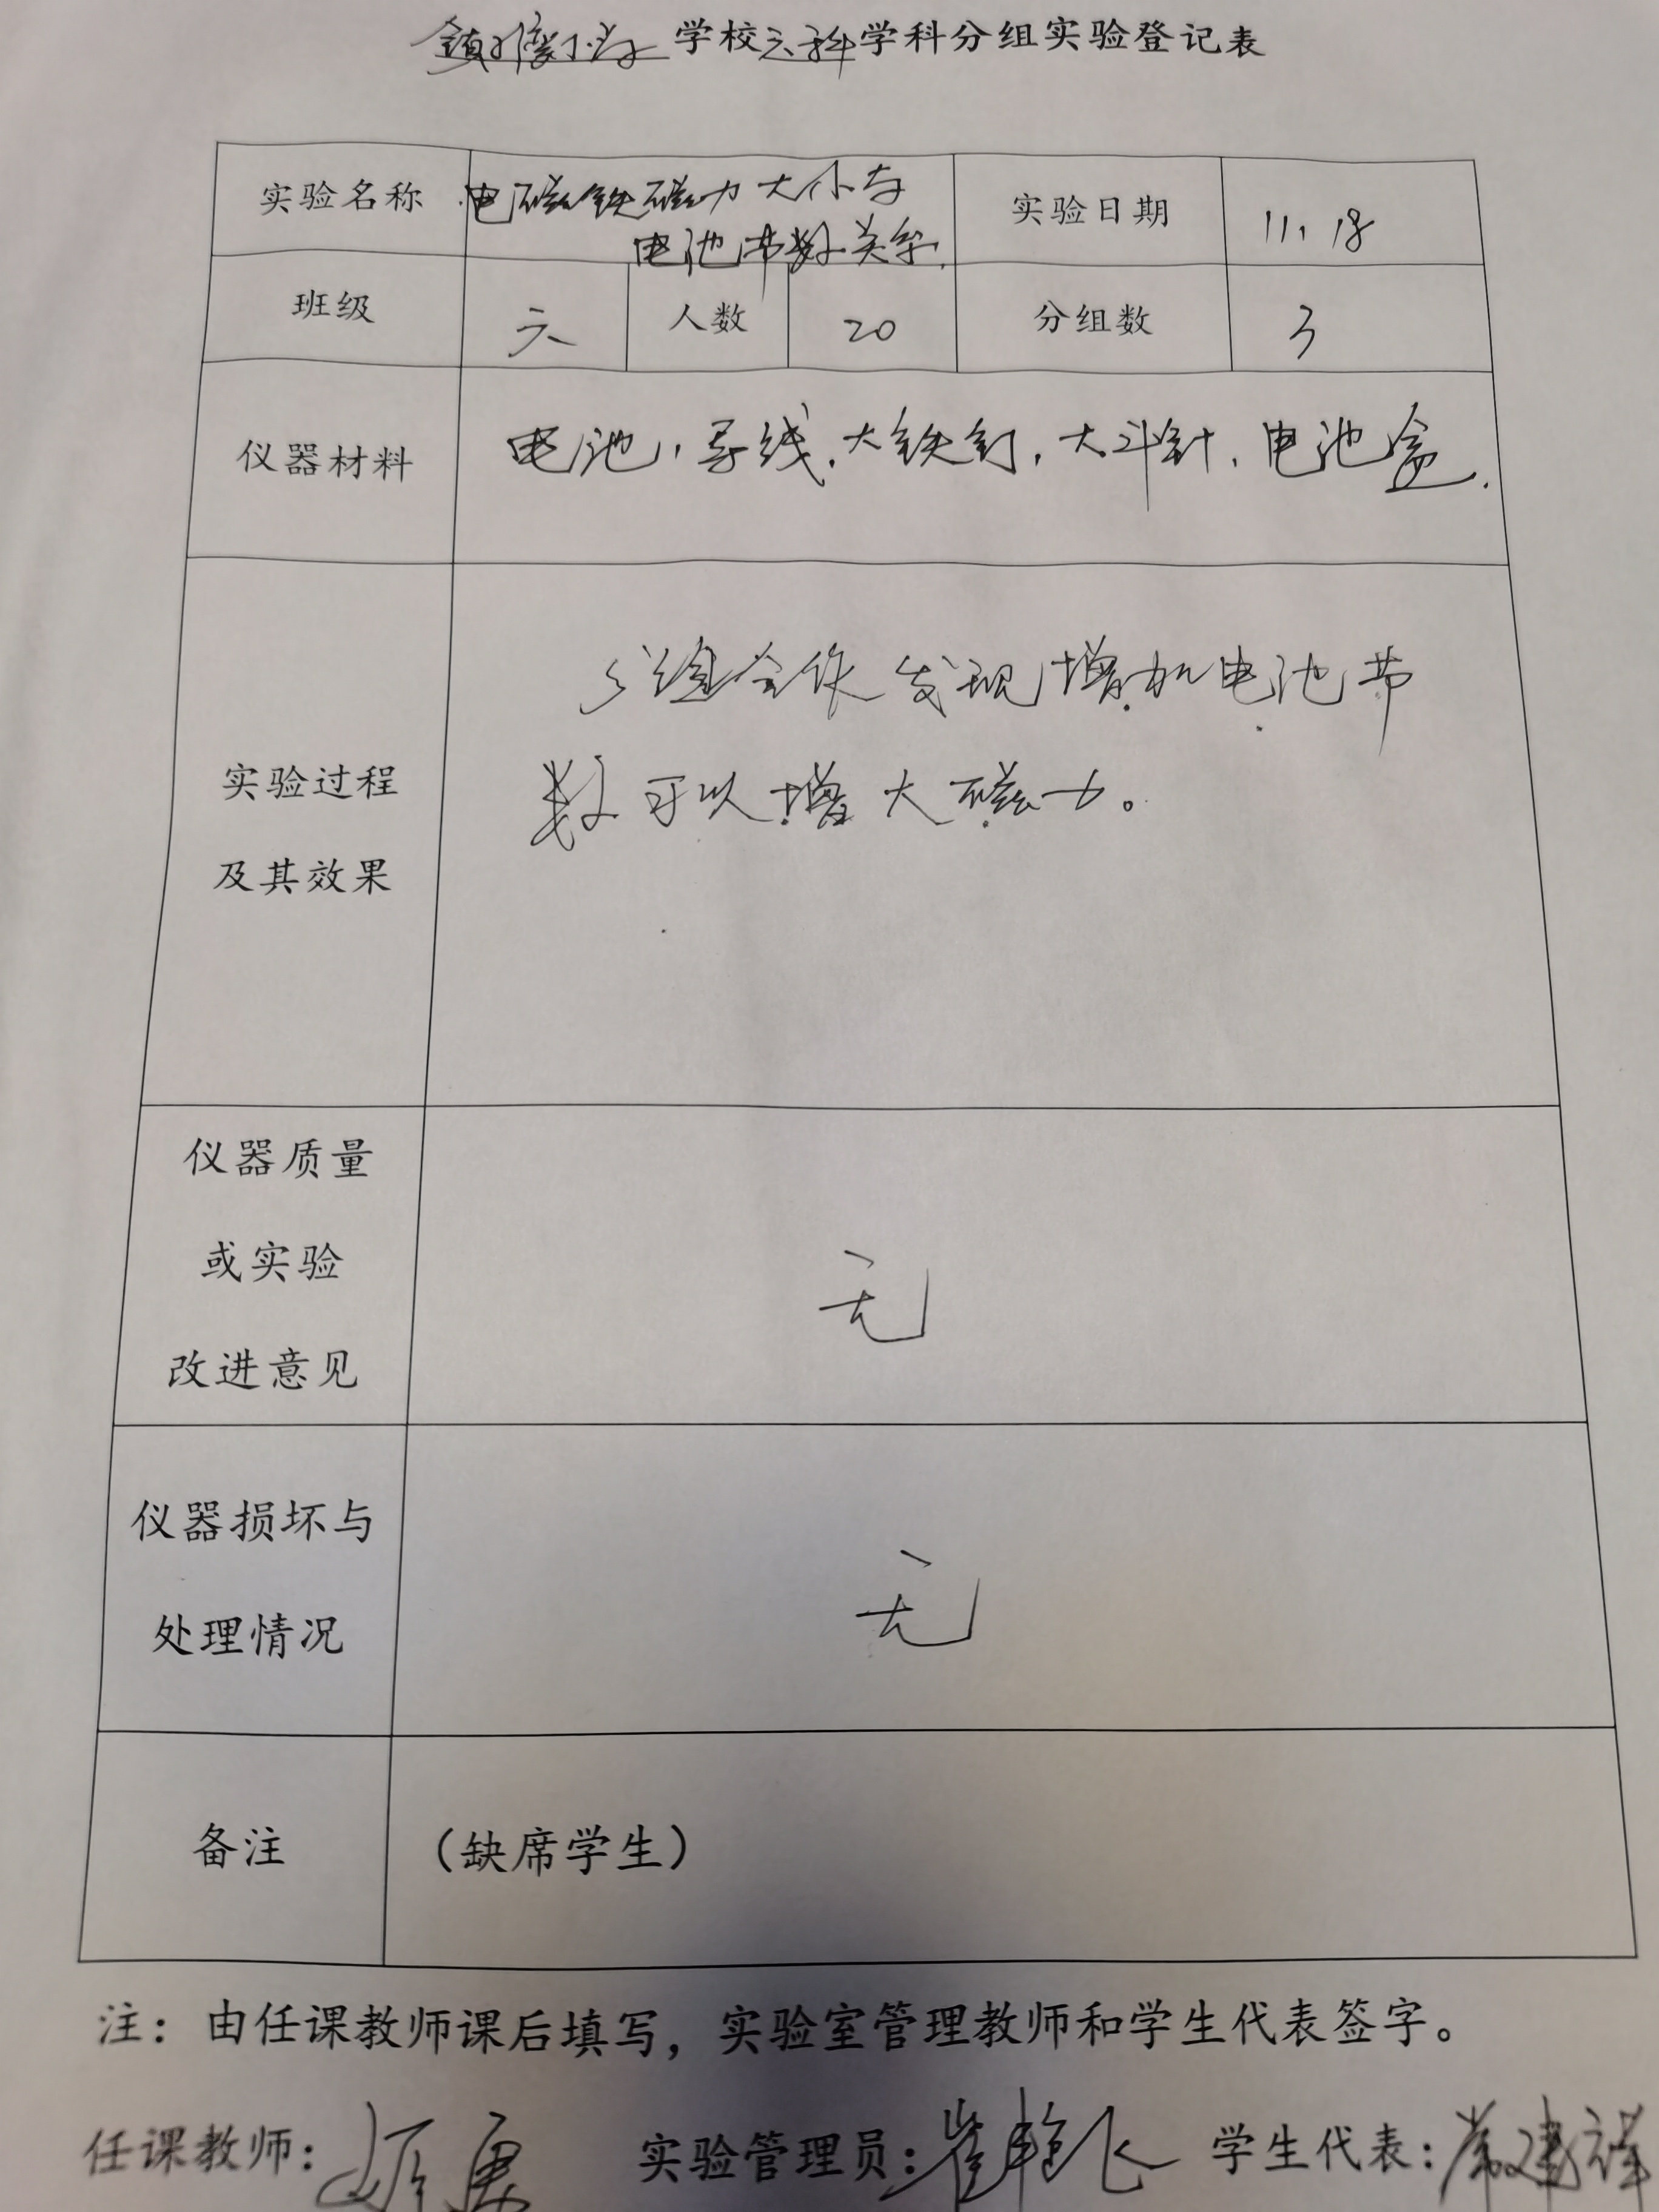 学校 学科分组实验登记表
实验名称 电磁铁磁力大小与
电池节数关系.
实验日期 11.18
班级 六 人数 20 分组数 3
仪器材料 电池,导线,大铁钉,大头针,电池盒.
实验过程
及其效果
分组合作 发现增加电池节
数可以增大磁力。
仪器质量
或实验
改进意见
无
仪器损坏与
处理情况
无
备注 (缺席学生)
注:由任课教师课后填写,实验室管理教师和学生代表签字。
任课教师: 实验管理员: 学生代表: